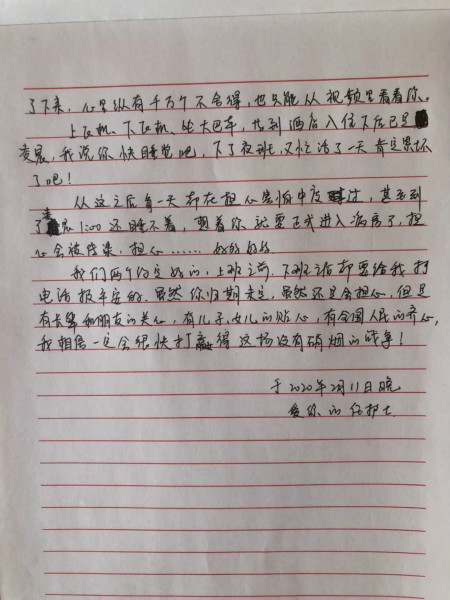 了下来，心里纵有千万个不舍得，也只能从视频里看看你。
上飞机、下飞机、坐大巴车，找到酒店入住下后已是
凌晨，我说你快睡觉吧，下了夜班，又忙活了一天肯定累坏
了吧！
从这之后每一天都在担心害怕中度过，甚至到
了凌晨1:00还睡不着，想着你就要正式进入病房了，担
心会被传染，担心……好好好好
我们两个约定好的，上班之前、下班之后都要给我打
电话报平安的。虽然你归期未定，虽然还是会担心，但是
有长辈和朋友的关心，有儿子、女儿的贴心，有全国人民的齐心，
我相信一定会很快打赢得这场没有硝烟的战争！
于2020年2月11日晚
爱你的护士